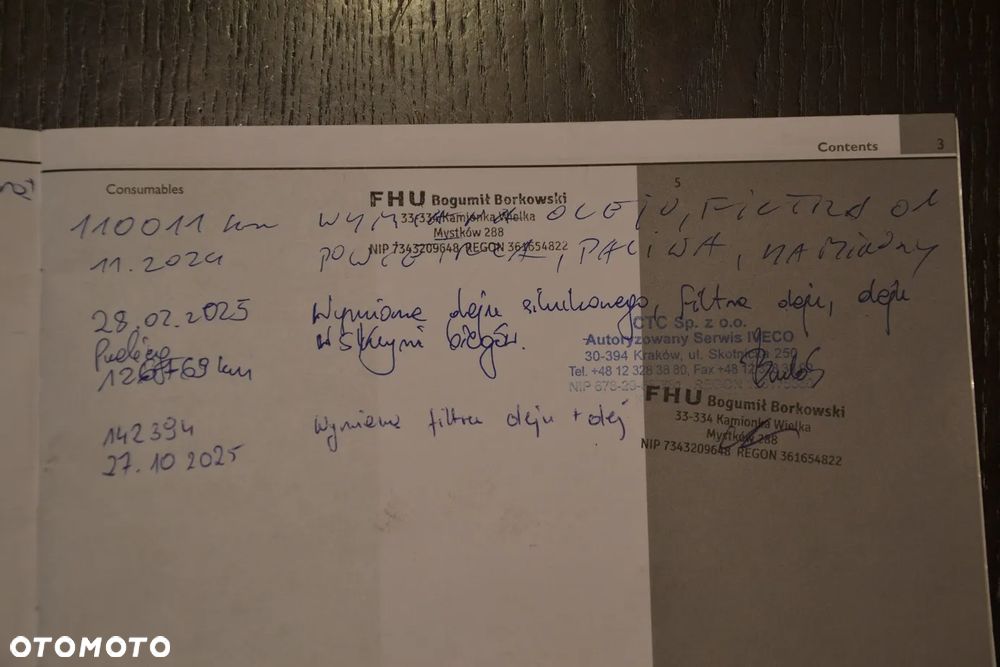 Contents 3
Consumables 5
FHU Bogumił Borkowski
33-334 Kamionka Wielka
Mystków 288
NIP 7343209648 REGON 361654822
110011 km WYMIANA OLEJU, FILTRA OL
11.2024 POWIETRZA, PALIWA,
28.02.2025 Wymiana oleju silnikowego, filtra oleju, oleju
w skrzyni biegów.
Przebieg
km
CTC Sp. z o.o.
Autoryzowany Serwis IVECO
30-394 Kraków, ul. Skotnicka 250
Tel. +48 12 328 38 80, Fax +48 12
NIP 678-
FHU Bogumił Borkowski
33-334 Kamionka Wielka
Mystków 288
NIP 7343209648 REGON 361654822
142394 Wymiana filtra oleju + olej
27.10 2025
OTOMOTO